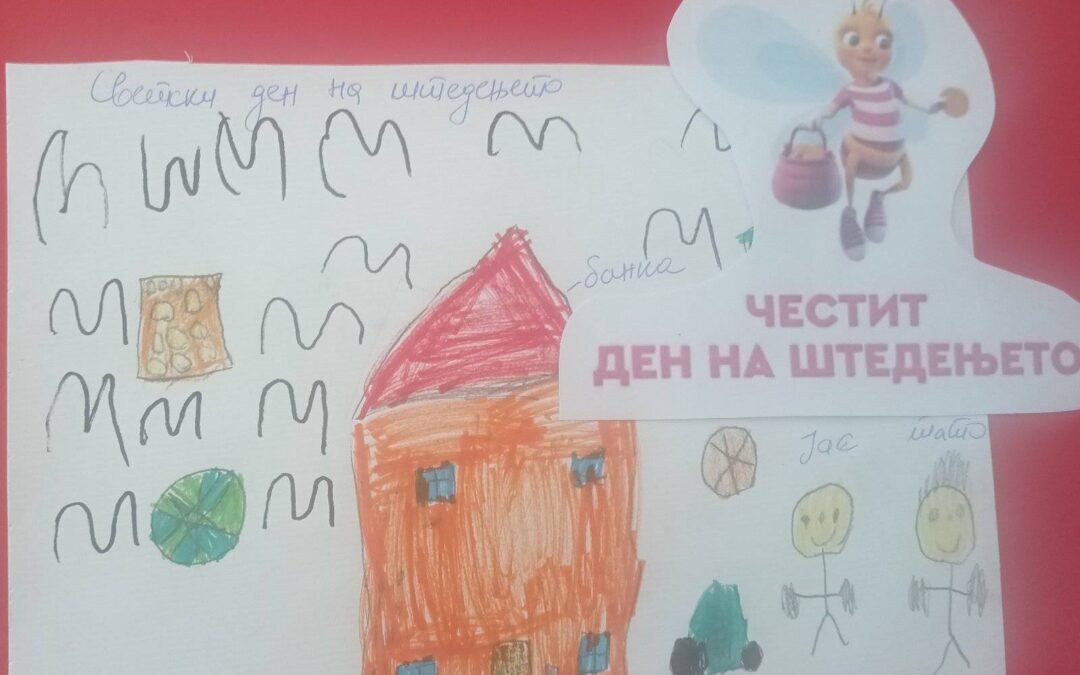 Светски ден на штедењето
банка
ЧЕСТИТ
ДЕН НА ШТЕДЕЊЕТО
Јас
тато